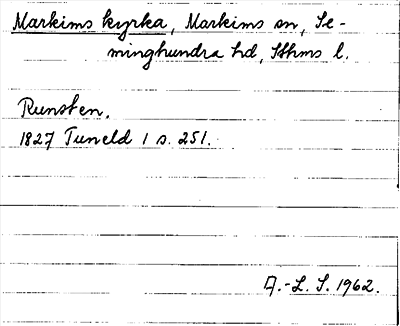 Markims kyrka, Markims sn, Se-
minghundra hd, Sthms l.
Runsten.
1827 Tuneld 1 s. 251.
A.-L. S. 1962.